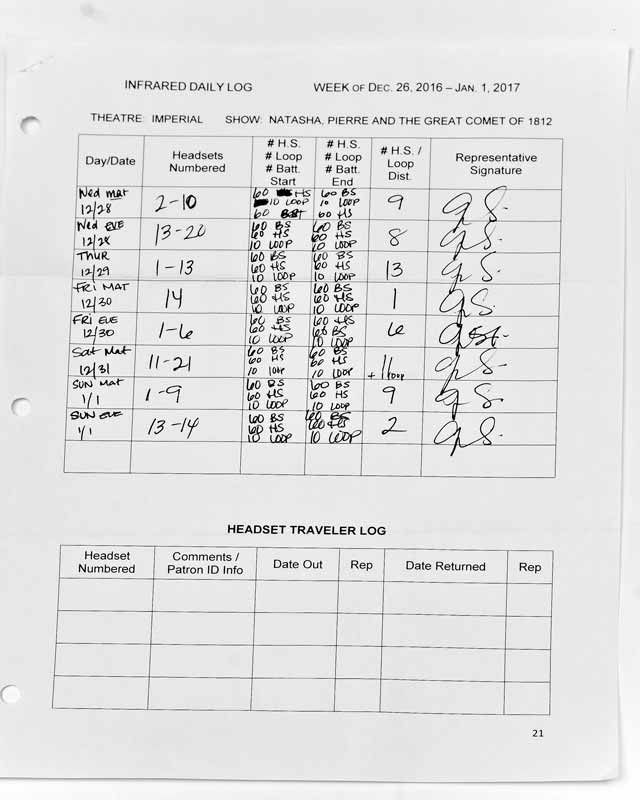 INFRARED DAILY LOG WEEK OF DEC. 26, 2016 – JAN. 1, 2017
THEATRE: IMPERIAL SHOW: NATASHA, PIERRE AND THE GREAT COMET OF 1812
Day/Date
Headsets
Numbered
# H.S.
# Loop
# Batt.
Start
# H.S.
# Loop
# Batt.
End
# H.S. /
Loop
Dist.
Representative
Signature
Wed mat
12/28
2-10
60 HS
10 LOOP
60 BST
60 BS
10 LOOP
60 HS
9
Wed EVE
12/28
13-20
60 BS
60 HS
10 LOOP
60 BS
60 HS
10 LOOP
8
THUR
12/29
1-13
60 BS
60 HS
10 LOOP
60 BS
60 HS
10 LOOP
13
FRI MAT
12/30
14
60 BS
60 HS
10 LOOP
60 BS
60 HS
10 LOOP
1
FRI EVE
12/30
1-6
60 BS
60 HS
10 LOOP
60 HS
60 BS
10 LOOP
6
Sat Mat
12/31
11-21
60 BS
60 HS
10 loop
60 BS
60 HS
10 LOOP
11
+ 1 loop
SUN MAT
1/1
1-9
60 BS
60 HS
10 LOOP
60 BS
60 HS
10 LOOP
9
SUN EVE
1/1
13-14
60 BS
60 HS
10 LOOP
60 BS
60 HS
10 LOOP
2
HEADSET TRAVELER LOG
Headset
Numbered
Comments /
Patron ID Info
Date Out
Rep
Date Returned
Rep
21